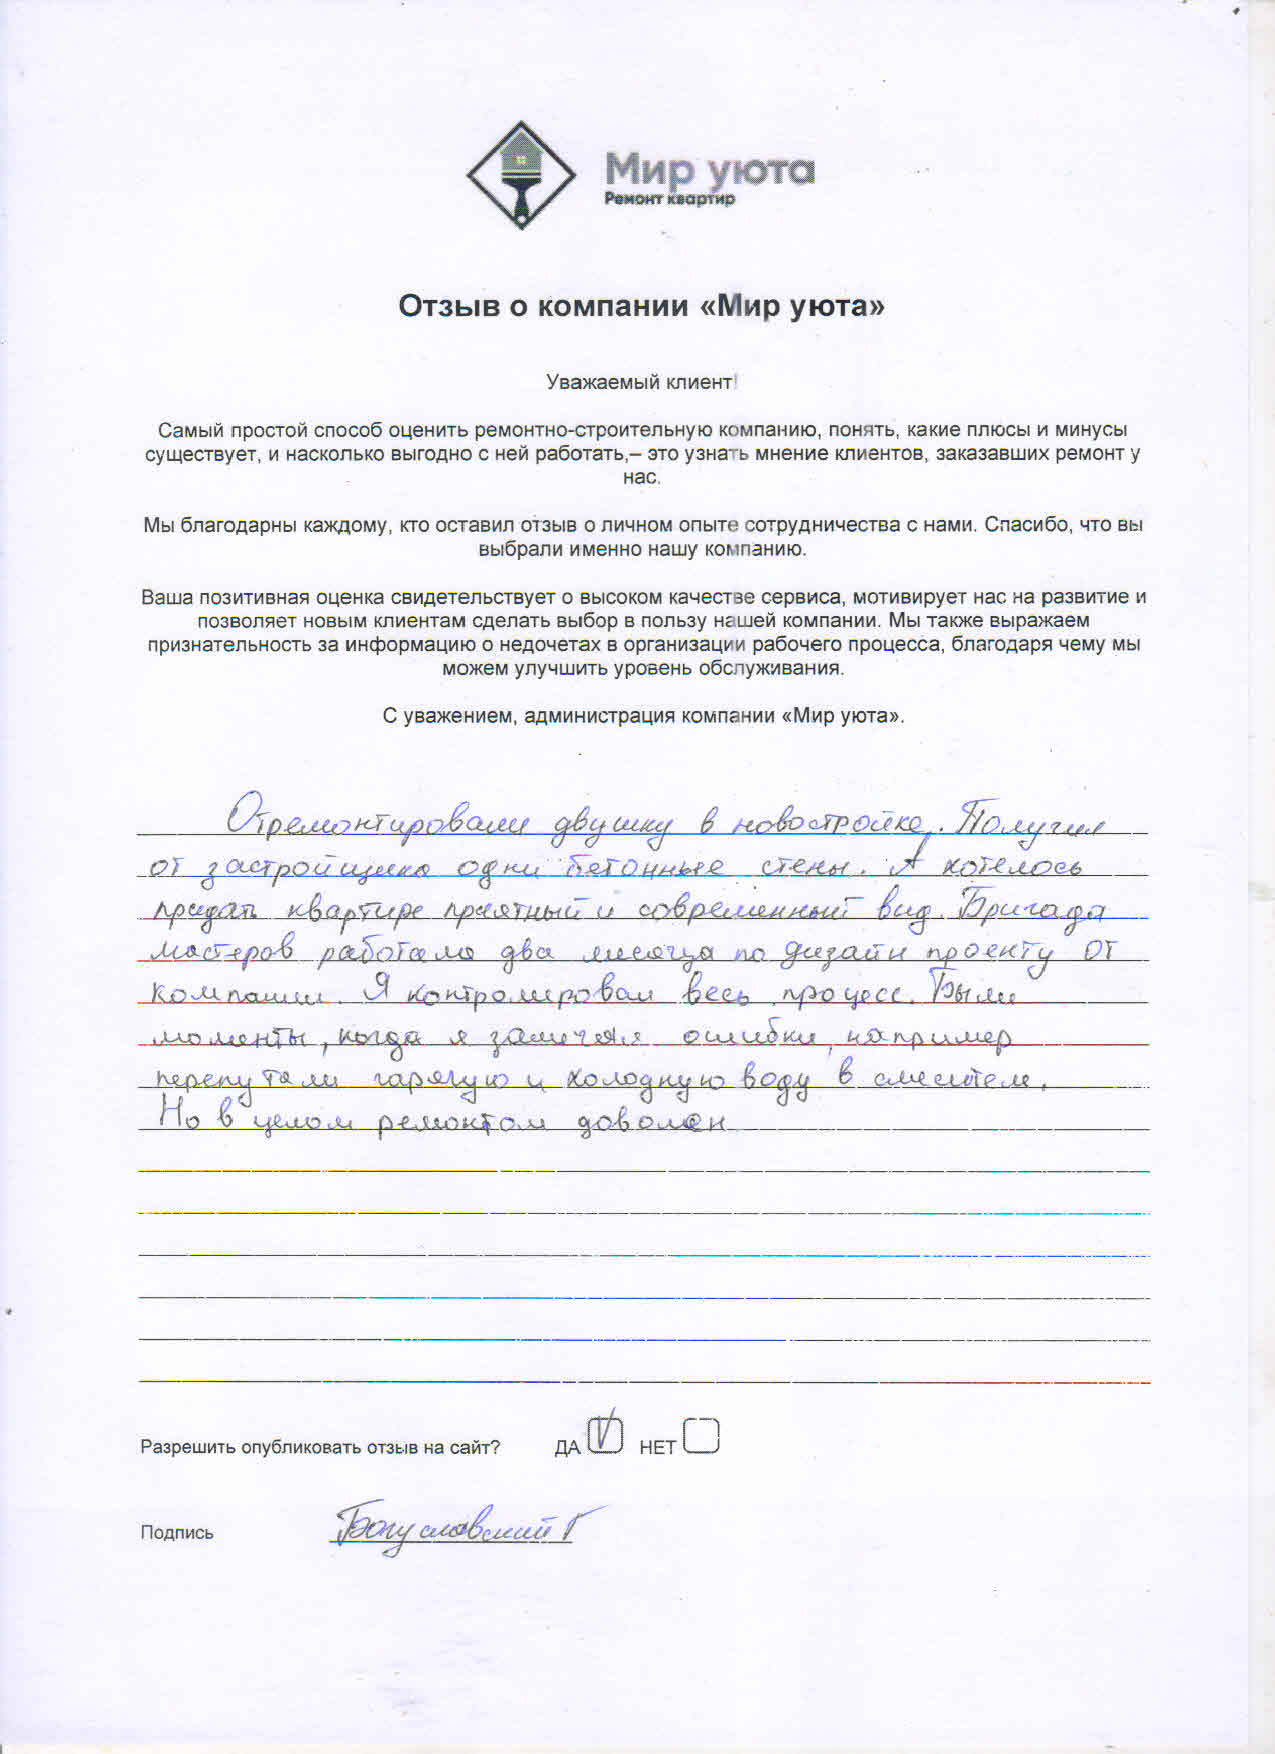 Мир уюта
Ремонт квартир
Отзыв о компании «Мир уюта»
Уважаемый клиент!
Самый простой способ оценить ремонтно-строительную компанию, понять, какие плюсы и минусы
существует, и насколько выгодно с ней работать,– это узнать мнение клиентов, заказавших ремонт у
нас.
Мы благодарны каждому, кто оставил отзыв о личном опыте сотрудничества с нами. Спасибо, что вы
выбрали именно нашу компанию.
Ваша позитивная оценка свидетельствует о высоком качестве сервиса, мотивирует нас на развитие и
позволяет новым клиентам сделать выбор в пользу нашей компании. Мы также выражаем
признательность за информацию о недочетах в организации рабочего процесса, благодаря чему мы
можем улучшить уровень обслуживания.
С уважением, администрация компании «Мир уюта».
Отремонтировали двушку в новостройке. Получил
от застройщика одни бетонные стены. А хотелось
придать квартире приятный и современный вид. Бригада
мастеров работала два месяца по дизайн проекту от
компании. Я контролировал весь процесс. Были
моменты, когда я замечал ошибки, например
перепутали гарячую и холодную воду в смесителе.
Но в целом ремонтом доволен
Разрешить опубликовать отзыв на сайт? ДА V НЕТ
Подпись Богуславский Г